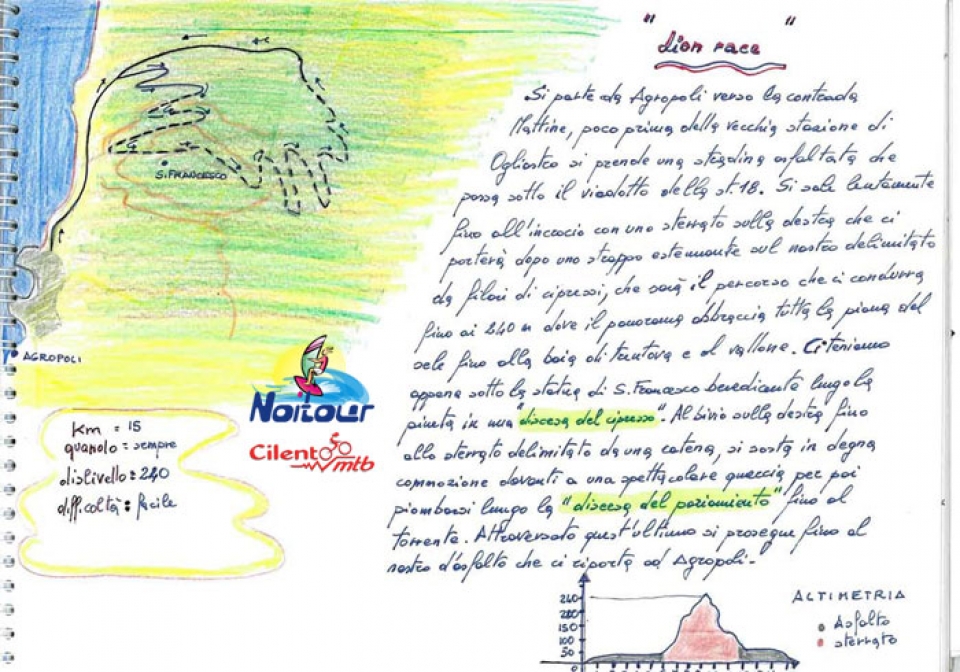 "Lion race"
Si parte da Agropoli verso la contrada
Mattine, poco prima della vecchia stazione di
Ogliastro si prende una stradina asfaltata che
passa sotto il viadotto della st. 18. Si sale lentamente
fino all'incrocio con uno sterrato sulla destra che ci
porterà dopo uno strappo estenuante sul nastro delimitato
da filari di cipressi, che sarà il percorso che ci condurrà
fino ai 240 m dove il panorama abbraccia tutta la piana del
sele fino alla baia di trentova e al vallone. Ci teniamo
appena sotto la statua di S. Francesco benedicente lungo la
pineta in una "discesa del cipresso". Al bivio sulla destra fino
allo sterrato delimitato da una catena, si sosta in degna
commozione davanti a una spettacolare quercia per poi
piombarsi lungo la "discesa del" fino al
torrente. Attraversato quest'ultimo si prosegue fino al
nastro d'asfalto che ci riporta ad Agropoli.-
S. FRANCESCO
AGROPOLI
Noitour
Cilento mtb
Km = 15
quando = sempre
dislivello = 240
difficoltà : facile
ALTIMETRIA
Asfalto
sterrato
240
200
150
100
50
0